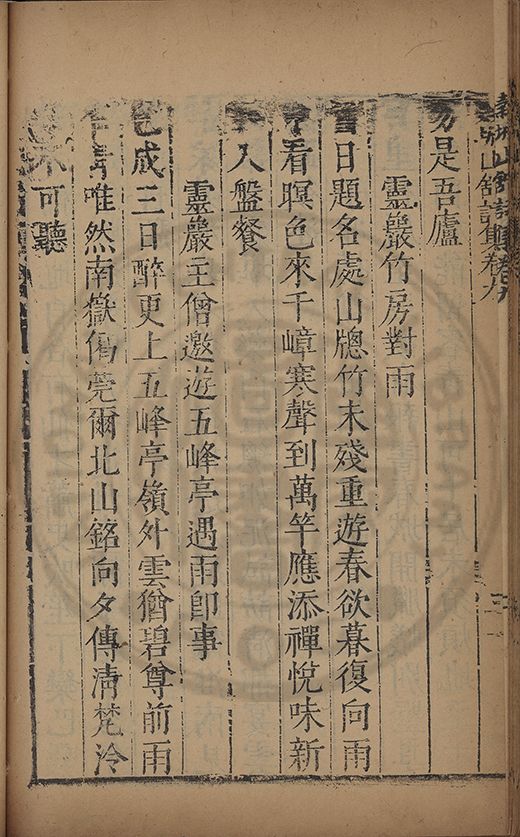 山館詩集卷九
是吾廬
靈巖竹房對雨
日題名處山牕竹末殘重遊春欲暮復向雨
看暝色來千嶂寒聲到萬竿應添禪悅味新
入盤餐
靈巖主僧邀遊五峰亭遇雨卽事
已成三日醉更上五峰亭嶺外雲猶碧尊前雨
唯然南嶽偈莞爾北山銘向夕傳淸梵泠
不可聽